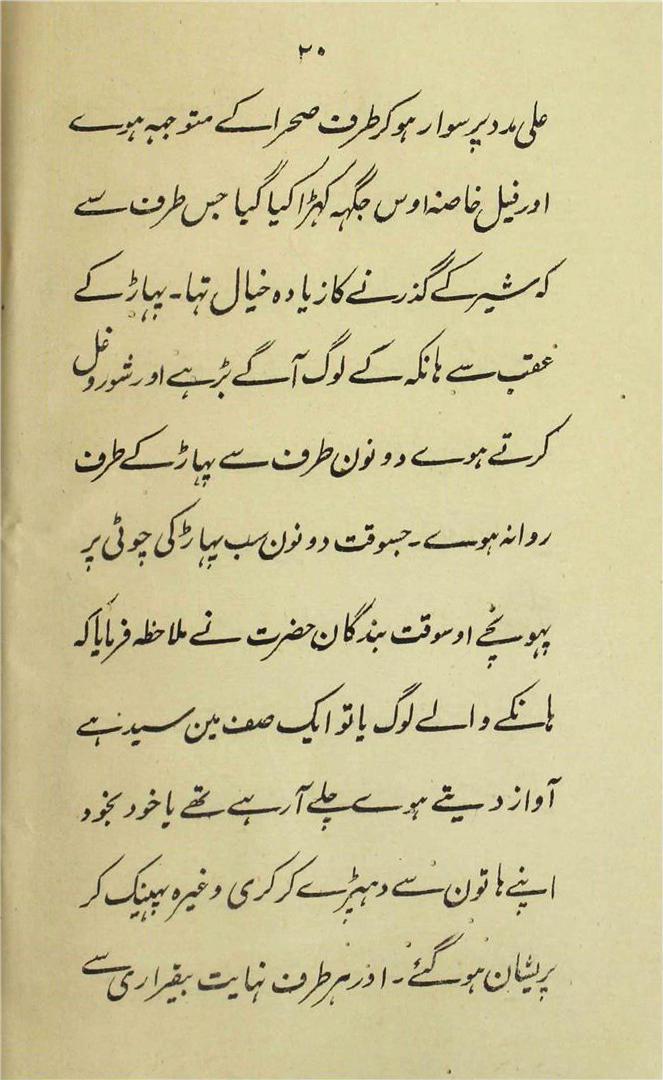 ۲۰
علی مدد پر سوار ہو کر طرف صحرا کے متوجہ ہوے
اور فیل خاصہ اوس جگہہ کہڑا کیا گیا جس طرف سے
کہ شیر کے گذرنے کا زیادہ خیال تہا۔ پہاڑ کے
عقب سے ہانکہ کے لوگ آگے بڑہے اور شور و غل
کرتے ہوے دونون طرف سے پہاڑ کے طرف
روانہ ہوے۔ جسوقت دونون سب پہاڑ کی چوٹی پر
پہونچے اوسوقت بندگان حضرت نے ملاحظہ فرمایا کہ
ہانکے والے لوگ یا تو ایک صف مین سیدہے
آواز دیتے ہوے چلے آرہے تھے یا خود بخود
اپنے ہاتون سے دہپڑے کرکری وغیرہ پہینک کر
پریشان ہو گئے۔ اور ہر طرف نہایت بیقراری سے